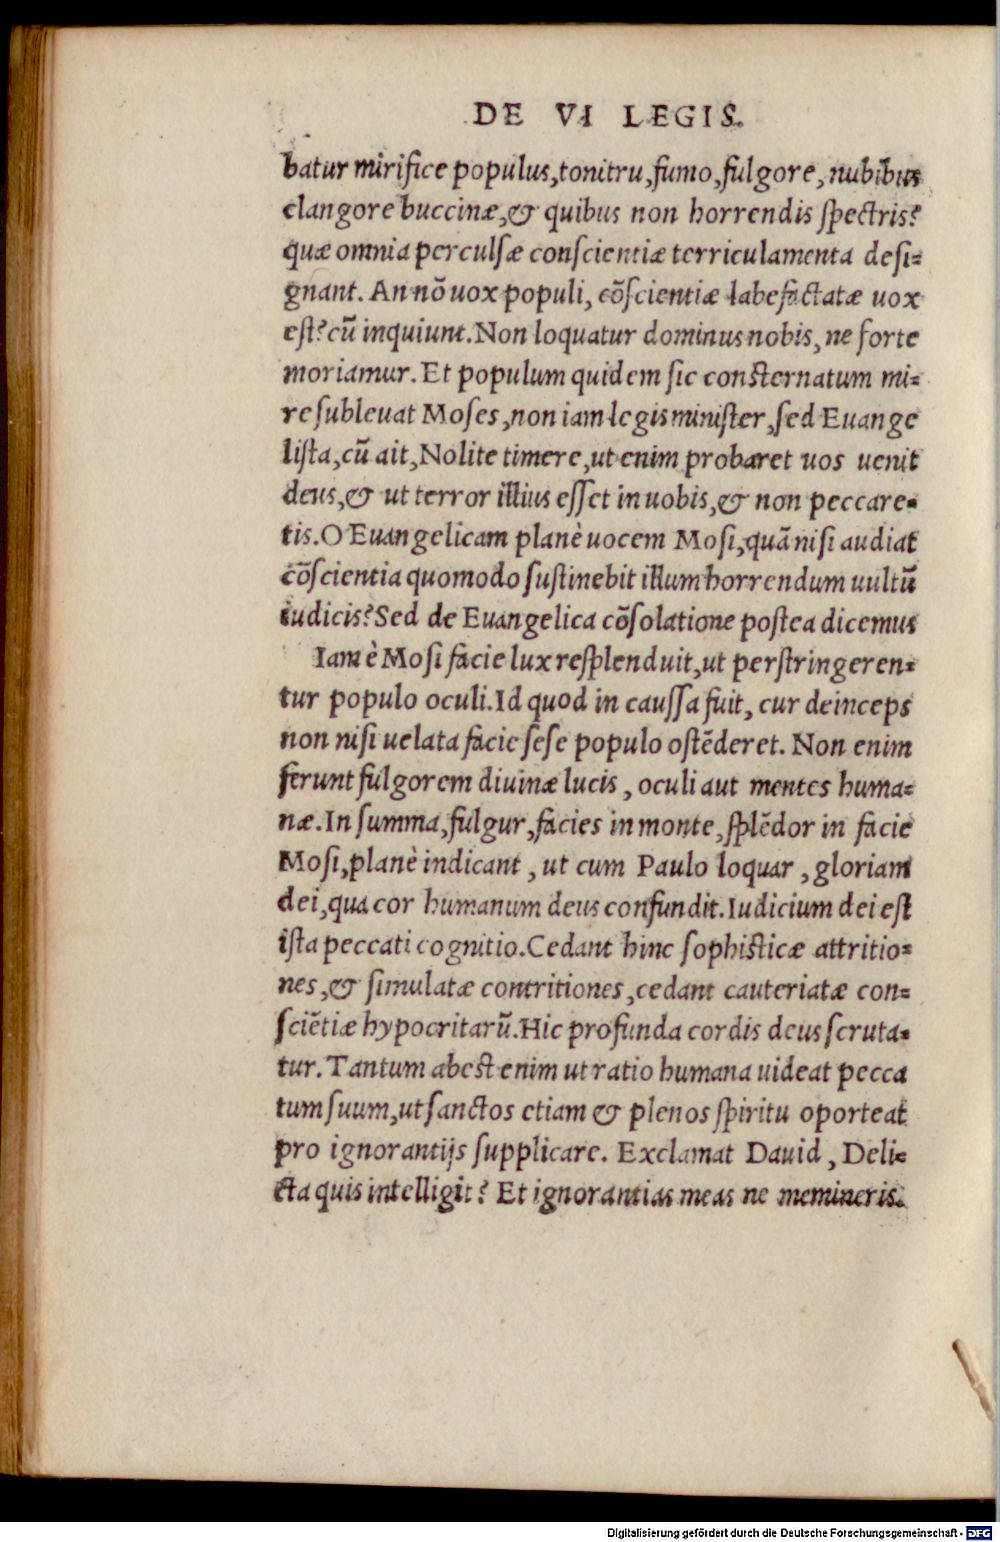 DE VI LEGIS.
batur mirifice populus,tonitru,fumo,fulgore, nubibus
clangore buccinæ,& quibus non horrendis ſpectris?
quæ omnia perculſæ conſcientiæ terriculamenta deſi=
gnant. An nõ uox populi, cõſcientiæ labefactatæ uox
eſt? cũ inquiunt. Non loquatur dominus nobis, ne forte
moriamur. Et populum quidem ſic conſternatum mi=
re ſubleuat Moſes,non iam legis miniſter,ſed Euange
liſta,cũ ait,Nolite timere,ut enim probaret uos uenit
deus,& ut terror illius eſſet in uobis,& non peccare=
tis. O Euangelicam planè uocem Moſi,quã niſi audiat
cõſcientia quomodo ſuſtinebit illum horrendum uultũ
iudicis? Sed de Euangelica cõſolatione poſtea dicemus
Iam è Moſi facie lux reſplenduit,ut perſtringeren=
tur populo oculi. Id quod in cauſſa fuit, cur deinceps
non niſi uelata facie ſeſe populo oſtẽderet. Non enim
ferunt fulgorem diuinæ lucis , oculi aut mentes huma=
næ. In ſumma,fulgur,facies in monte,ſplẽdor in facie
Moſi,planè indicant , ut cum Paulo loquar , gloriam
dei,qua cor humanum deus confundit. Iudicium dei eſt
iſta peccati cognitio. Cedant hinc ſophiſticæ attritio=
nes,& ſimulatæ contritiones,cedant cauteriatæ con=
ſciẽtiæ hypocritarũ. Hic profunda cordis deus ſcruta=
tur. Tantum abeſt enim ut ratio humana uideat pecca
tum ſuum,ut ſanctos etiam & plenos ſpiritu oporteat
pro ignorantijs ſupplicare. Exclamat Dauid , Deli=
cta quis intelligit? Et ignorantias meas ne memineris.
Digitalisierung gefördert durch die Deutsche Forschungsgemeinschaft - DFG